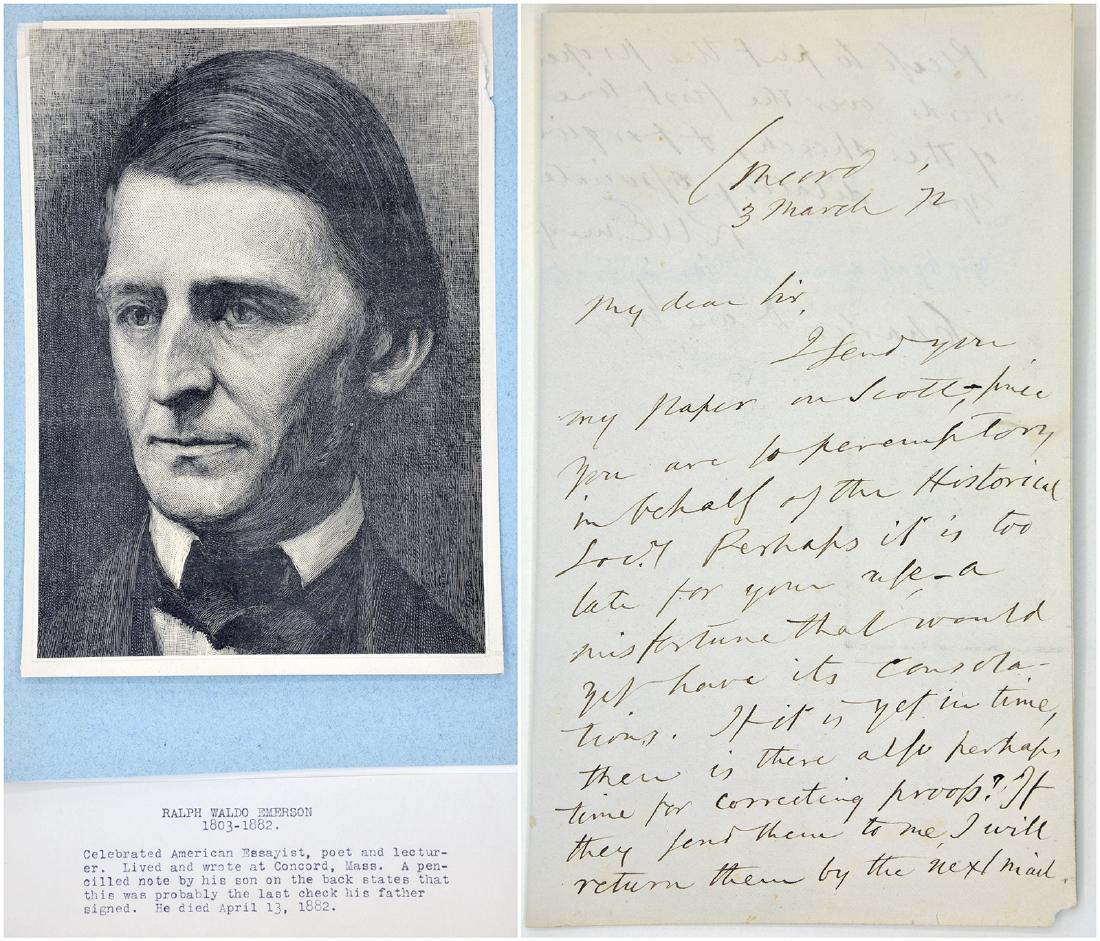 RALPH WALDO EMERSON
1803-1882.
Celebrated American Essayist, poet and lectur-
er. Lived and wrote at Concord, Mass. A pen-
cilled note by his son on the back states that
this was probably the last check his father
signed. He died April 13, 1882.
Concord
3 March '72
My dear Sir,
I send you
my paper on Scott, since
you are so peremptory
in behalf of the Historical
Socy. Perhaps it is too
late for your use – a
misfortune that would
yet have its consola-
tions. If it is yet in time,
then is there also perhaps
time for correcting proofs? If
they send them to me, I will
return them by the next mail.